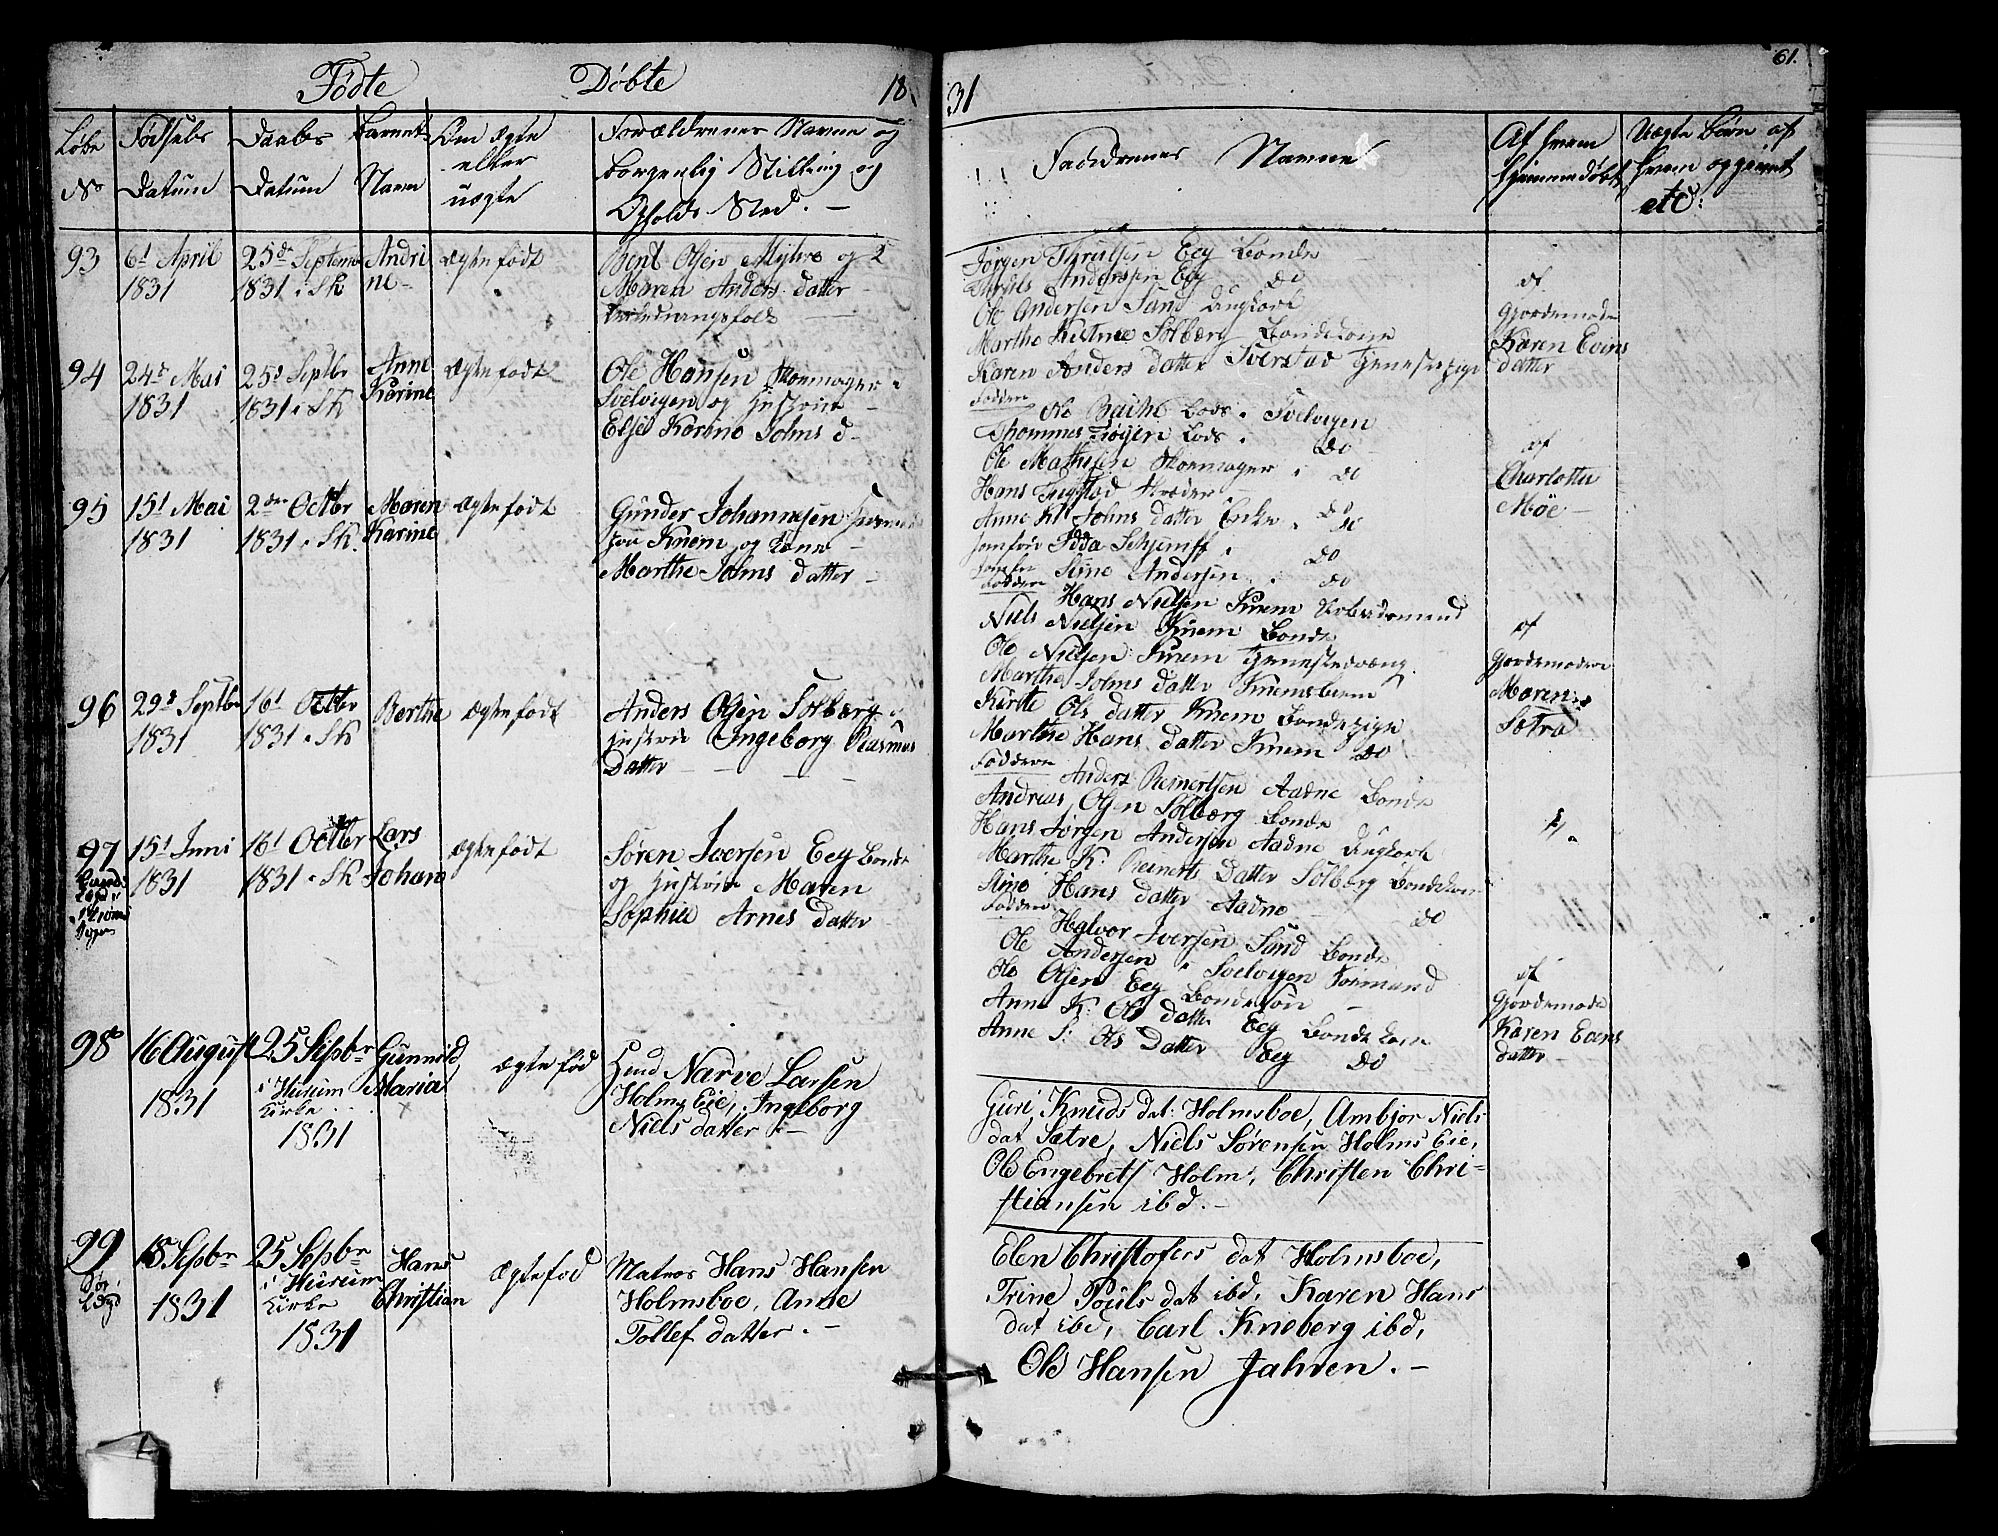 Fødte Døbte 1831
61.
Løbe No
Fødsels Datum
Daabs Datum
Barnets Navn
Om ægte eller uægte
Forældrenes Navne og borgerlig Stilling og Opholds Sted. —
Faddernes Navne
Af hvem hjemmedøbt
Uægte Børn af hvem opgivet etc:
93
6t April
1831
25d Septemb
1831 i Sk
Andri
ne
ægtefødt
Bent Olsen Myhre og
Maren Anders datter
Jørgen Thrulsen Eeg Bonde
Thruls Anderssen Eeg do
Ole Andersen Sand Ungkarl
Marthe Kistine Solberg Bondekone
Karen Anders datter Sverstad Tjenestepige
af
Gjordemode
Karen Evens
datter
94
24d Mai
1831
25d Septbr
1831 i Sk
Anne
Karine
ægtefødt
Ole Hansen Skomager i
Svelvigen og Hustrue
Else Karine Johns d
Faddere
Ole Bache Lods i Svelvigen
Thommes Lods i do
Ole Mathisen Skomager i do
Hans do
Anne K. Johns datter Enke i do
Jomfrue Idda i do
Stine Andersen i do
af
Charlotte
Møe —
95
15t Mai
1831
2den Octbr
1831 i Sk.
Maren
Karine
ægtefødt
Gunder Johannesen
paa Knem og Kone
Marthe Johns datter
Faddere
Hans Nielsen Knem Arbeidsmand
Niels Nielsen Knem Bonde
Ole Nielsen Knem Tjenestedreng
Marthe Johns datter
Kirstie Ols datter Knem Bondepige
Marthe Hans datter Knem do
af
Gjordemodere
Maren
Sætra
96
29d Septbr
1831
16t Octbr
1831 i Sk
Berthe
ægtefødt
Anders Olsen Solberg
Hustrue Ingeborg Rasmus
Datter
Faddere
Anders Reinertsen Aadne Bonde
Andreas Olsen Solberg Bonde
Hans Jørgen Andersen Aadne Ungkarl
Marthe K. Reinerts Datter Solberg Bondekone
Stine Hans datter Aadne do
97
15t Juni
1831
16t Octbr
1831 i Sk
Lars
Johan
ægtefødt
Søren Iversen Eeg Bonde
og Hustrue Maren
Sophie Arnes datter
Faddere
Halvor Iversen Sand Bonde
Ole Andersen i Svelvigen Sømand
Ole Olsen Eeg Bondesøn
Anne K. Ols datter Eeg Bondekone
Anne S. Ols Datter Eeg do
af
Gjordemode
Karen Evens
datter
98
16 August
1831
25 Sepbr
i Hurum
Kirke
1831
Gunnild
Maria
ægtefød
Narve Larsen
Holms Eie, Ingeborg
Niels datter. —
Guri Knuds dat: Holmsboe, Ambjør Niels
dat Sætre, Niels Sørensen Holms Eie,
Ole Engebrets Holm, Christen Chri-
stiansen ibd. —
99
15 Sepbr
1831
25 Sepbr
i Hurum
Kirke
1831
Hans
Christian
ægtefød
Matros Hans Hansen
Holmsboe, Anne
Tollef datter. —
Elen Christofers dat Holmsboe,
Trine Pouls dat ibd, Karen Hans
dat ibd, Carl Knieberg ibd,
Ole Hansen Jahren. —